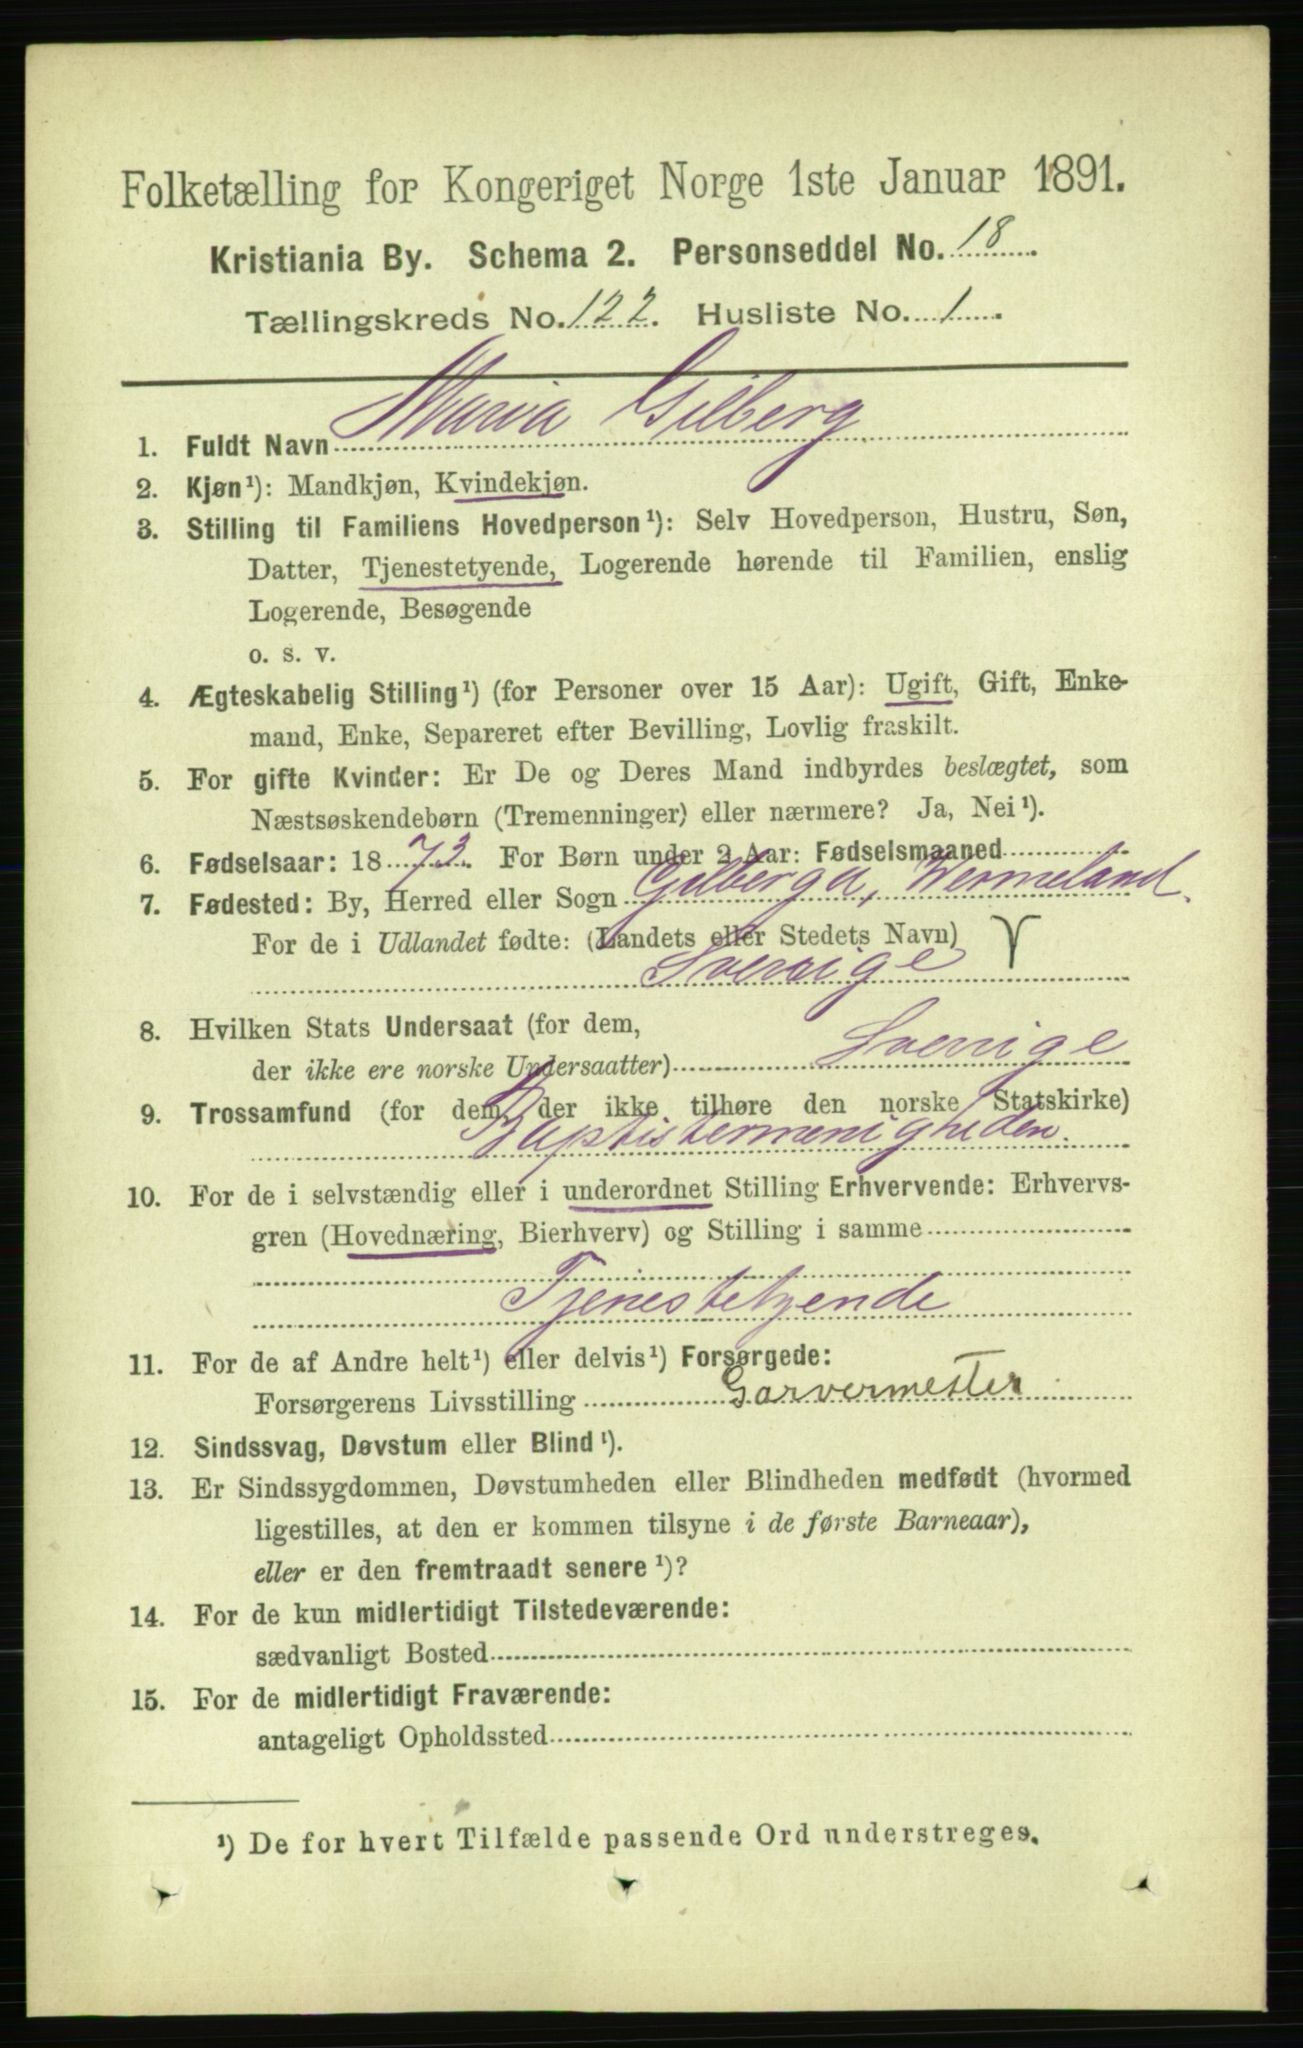 Folketælling for Kongeriget Norge 1ste Januar 1891.
Kristiania By. Schema 2. Personseddel No. 18
Tællingskreds No. 122. Husliste No. 1
1. Fuldt Navn Maria Gilberg
2. Kjøn¹): Mandkjøn, Kvindekjøn.
3. Stilling til Familiens Hovedperson¹): Selv Hovedperson, Hustru, Søn,
Datter, Tjenestetyende, Logerende hørende til Familien, enslig
Logerende, Besøgende
o. s. v.
4. Ægteskabelig Stilling¹) (for Personer over 15 Aar): Ugift, Gift, Enke-
mand, Enke, Separeret efter Bevilling, Lovlig fraskilt.
5. For gifte Kvinder: Er De og Deres Mand indbyrdes beslægtet, som
Næstsøskendebørn (Tremenninger) eller nærmere? Ja, Nei¹).
6. Fødselsaar: 1873. For Børn under 2 Aar: Fødselsmaaned
7. Fødested: By, Herred eller Sogn Gilberga, Wermeland.
For de i Udlandet fødte: (Landets eller Stedets Navn)
Sverige
8. Hvilken Stats Undersaat (for dem,
der ikke ere norske Undersaatter) Sverige
9. Trossamfund (for dem, der ikke tilhøre den norske Statskirke)
Baptistermenigheden.
10. For de i selvstændig eller i underordnet Stilling Erhvervende: Erhvervs-
gren (Hovednæring, Bierhverv) og Stilling i samme
Tjenestetyende
11. For de af Andre helt¹) eller delvis¹) Forsørgede:
Forsørgerens Livsstilling Garvermester
12. Sindssvag, Døvstum eller Blind¹).
13. Er Sindssygdommen, Døvstumheden eller Blindheden medfødt (hvormed
ligestilles, at den er kommen tilsyne i de første Barneaar),
eller er den fremtraadt senere¹)?
14. For de kun midlertidigt Tilstedeværende:
sædvanligt Bosted
15. For de midlertidigt Fraværende:
antageligt Opholdssted
¹) De for hvert Tilfælde passende Ord understreges.